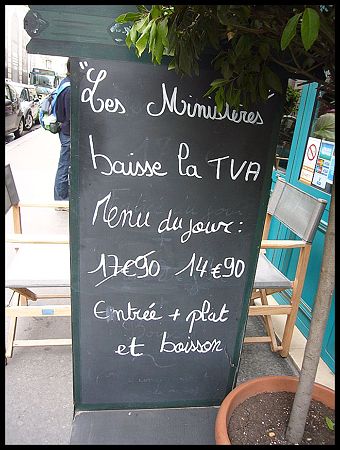 "Les Ministères"
baisse la TVA
Menu du jour:
17€90 14€90
Entrée + plat
et boisson